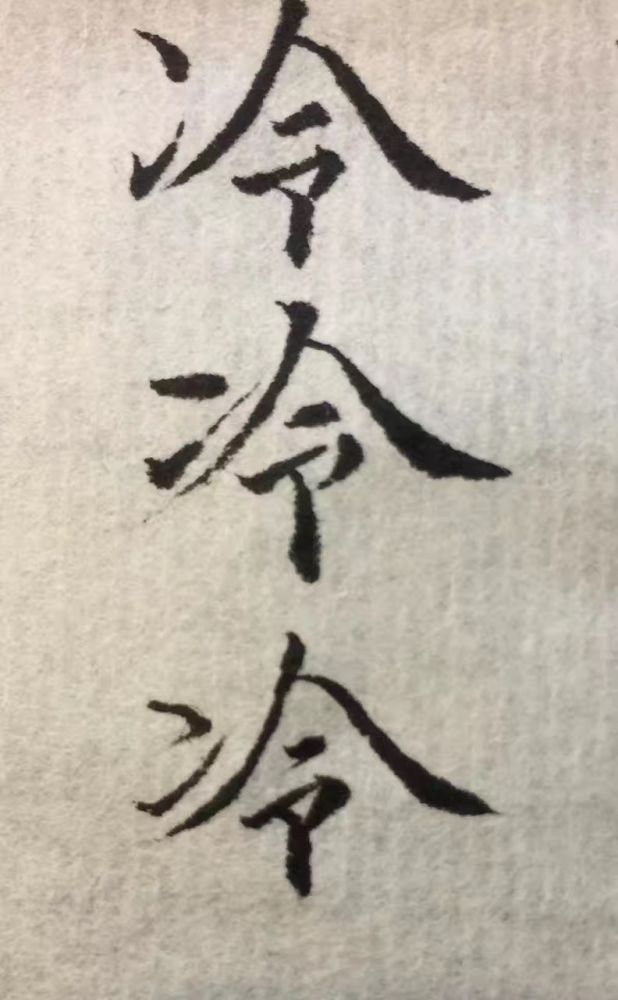 冷
冷
冷